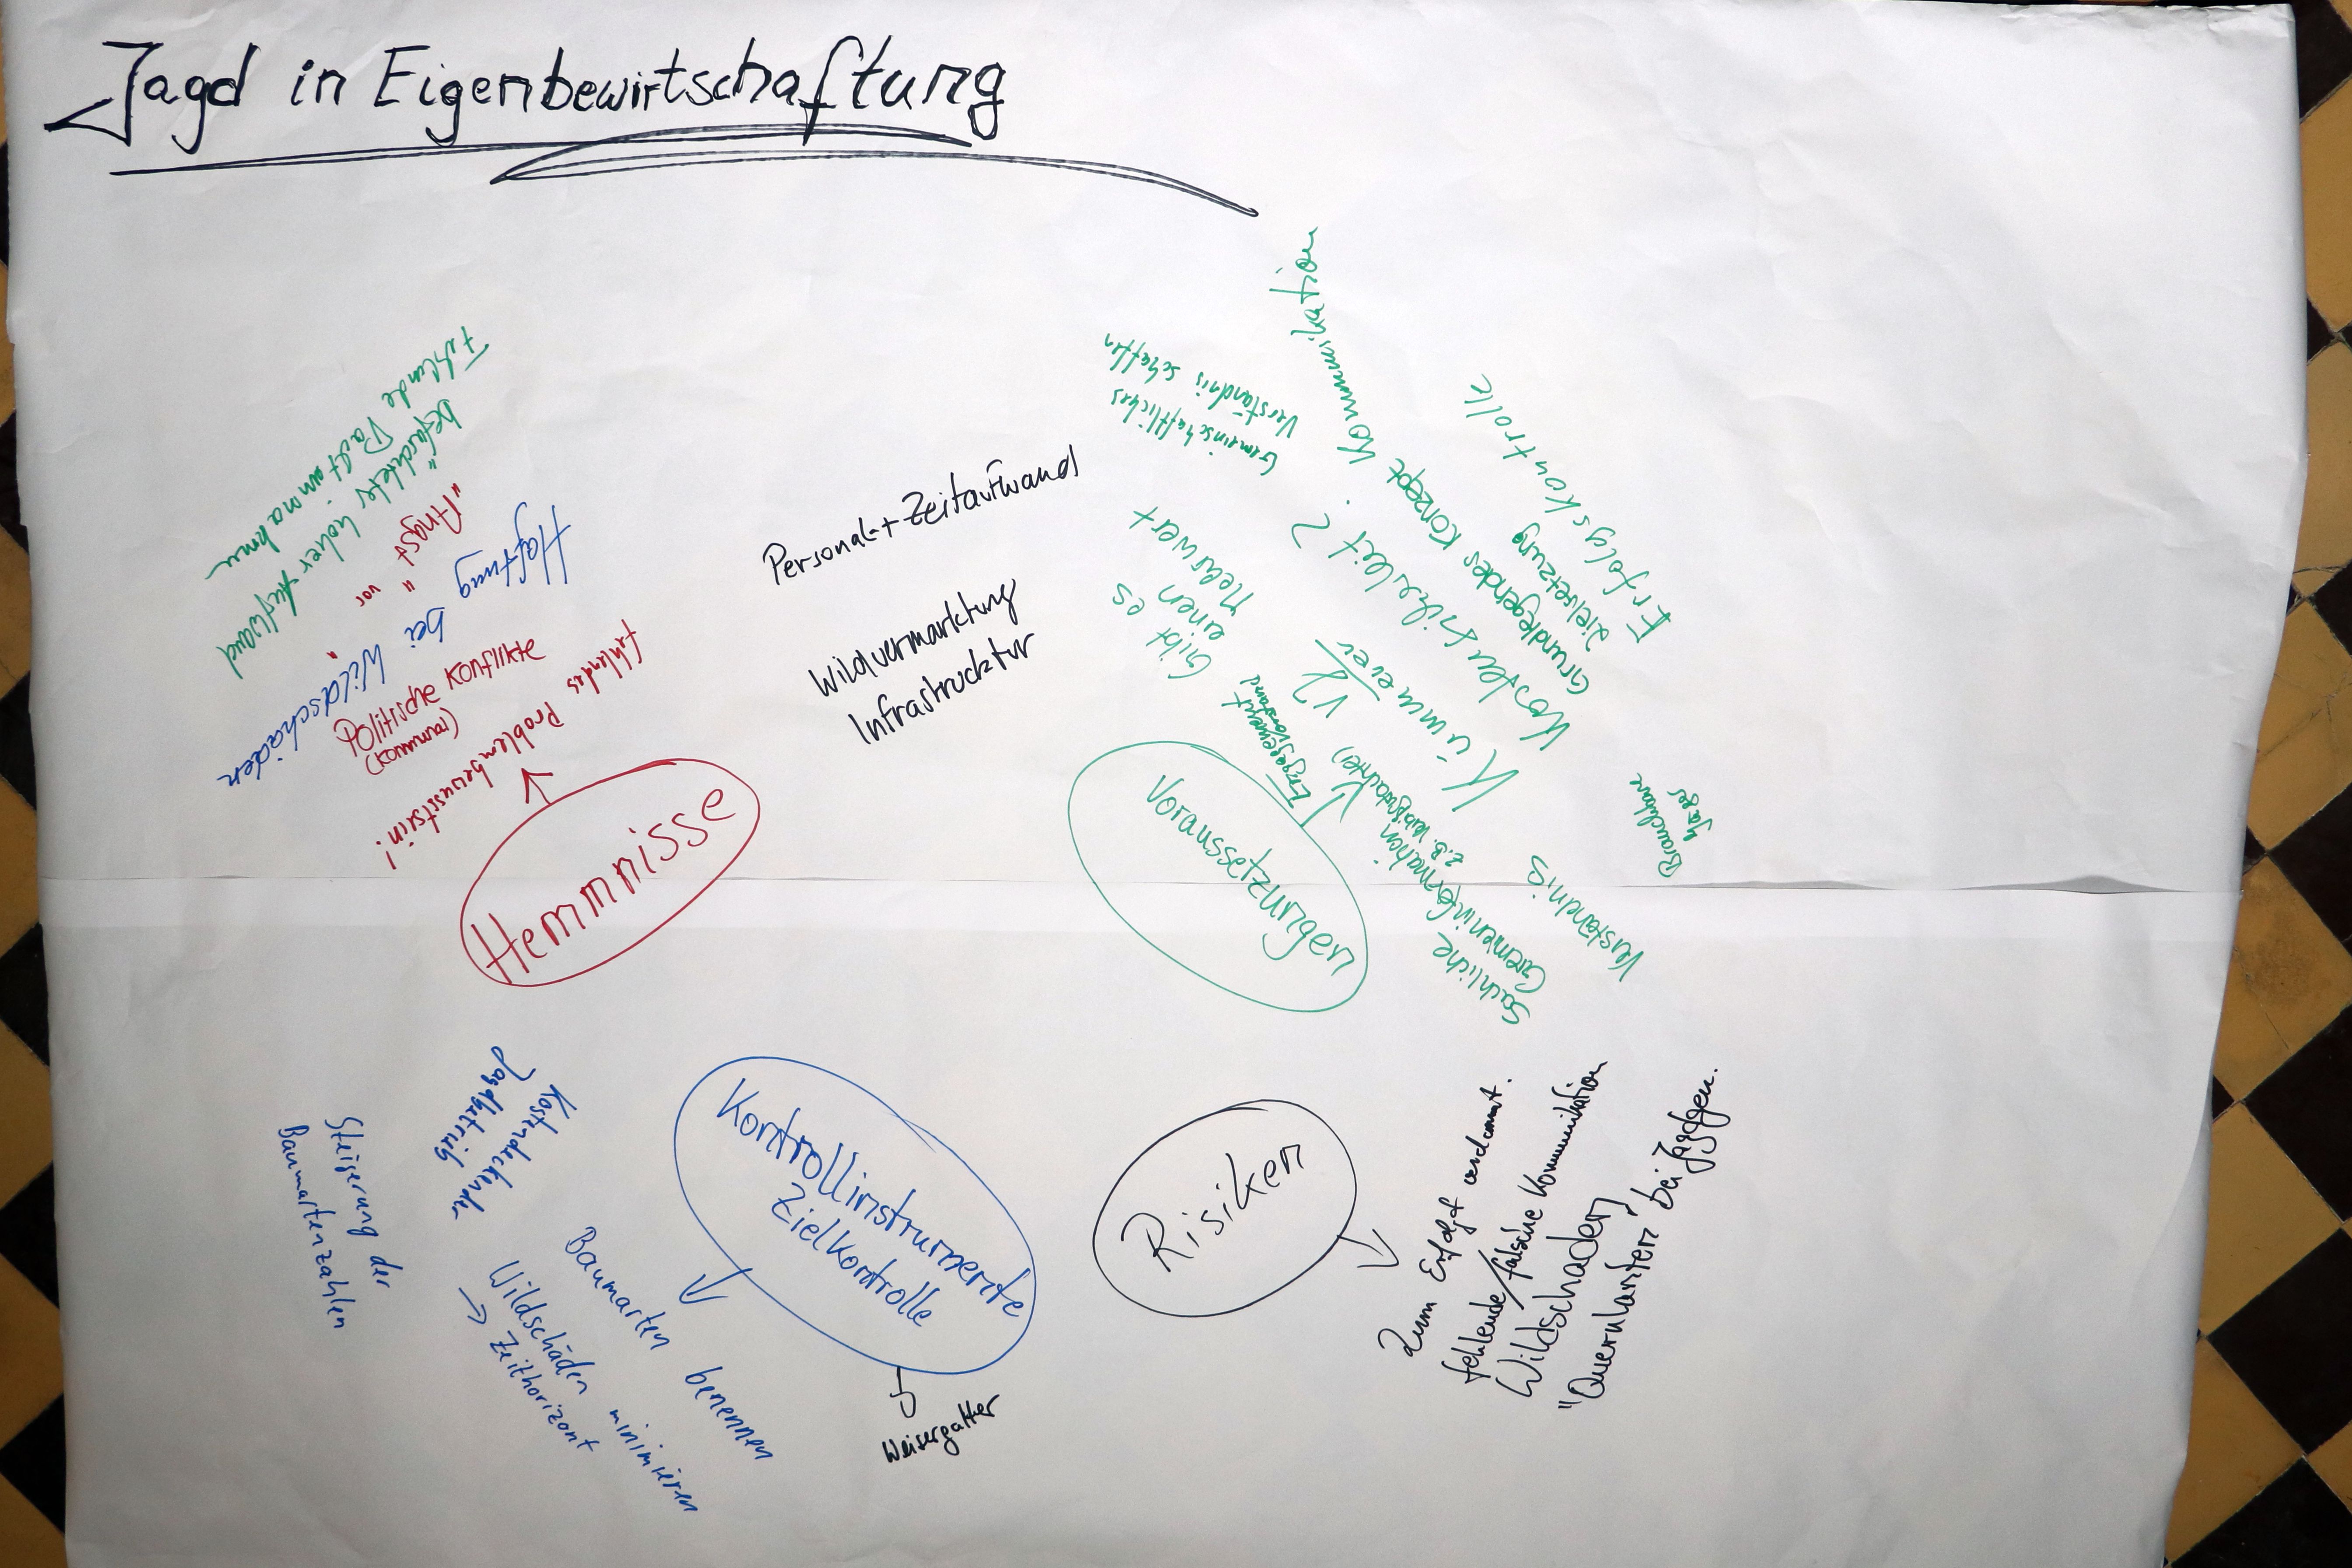 Jagd in Eigenbewirtschaftung
Fehlende Pachteinnahme
befürchteter hoher Aufwand
"Angst" vor
Haftung bei Wildschäden
Politische Konflikte
(Kommune)
fehlendes Problembewusstsein!
Hemmnisse
Personal-+Zeitaufwand
Wildvermarktung
Infrastrucktur
Kommunikation
Gemeinschaftliches
Verständnis schaffen
Gibt es
einen
Mehrwert
Erfolgskontrolle
Zielsetzung
Grundlegendes Konzept
Kostensicherheit?
Kümmerer
Engagement
Vorstand
Voraussetzungen
Sachliche
Gemeininformationen
Verständnis
Brauchbare
Jäger
Kontrollinstrumente
Zielkontrolle
Kostendeckender
Jagdbetrieb
Steigerung der
Baumartenzahlen
Baumarten benennen
Wildschäden minimieren
→ Zeithorizont
Weisergatter
Risiken
Zum Erfolgt verdammt.
fehlende/falsche Kommunikation
Wildschaden
"Querulanten" bei Jagdgen.